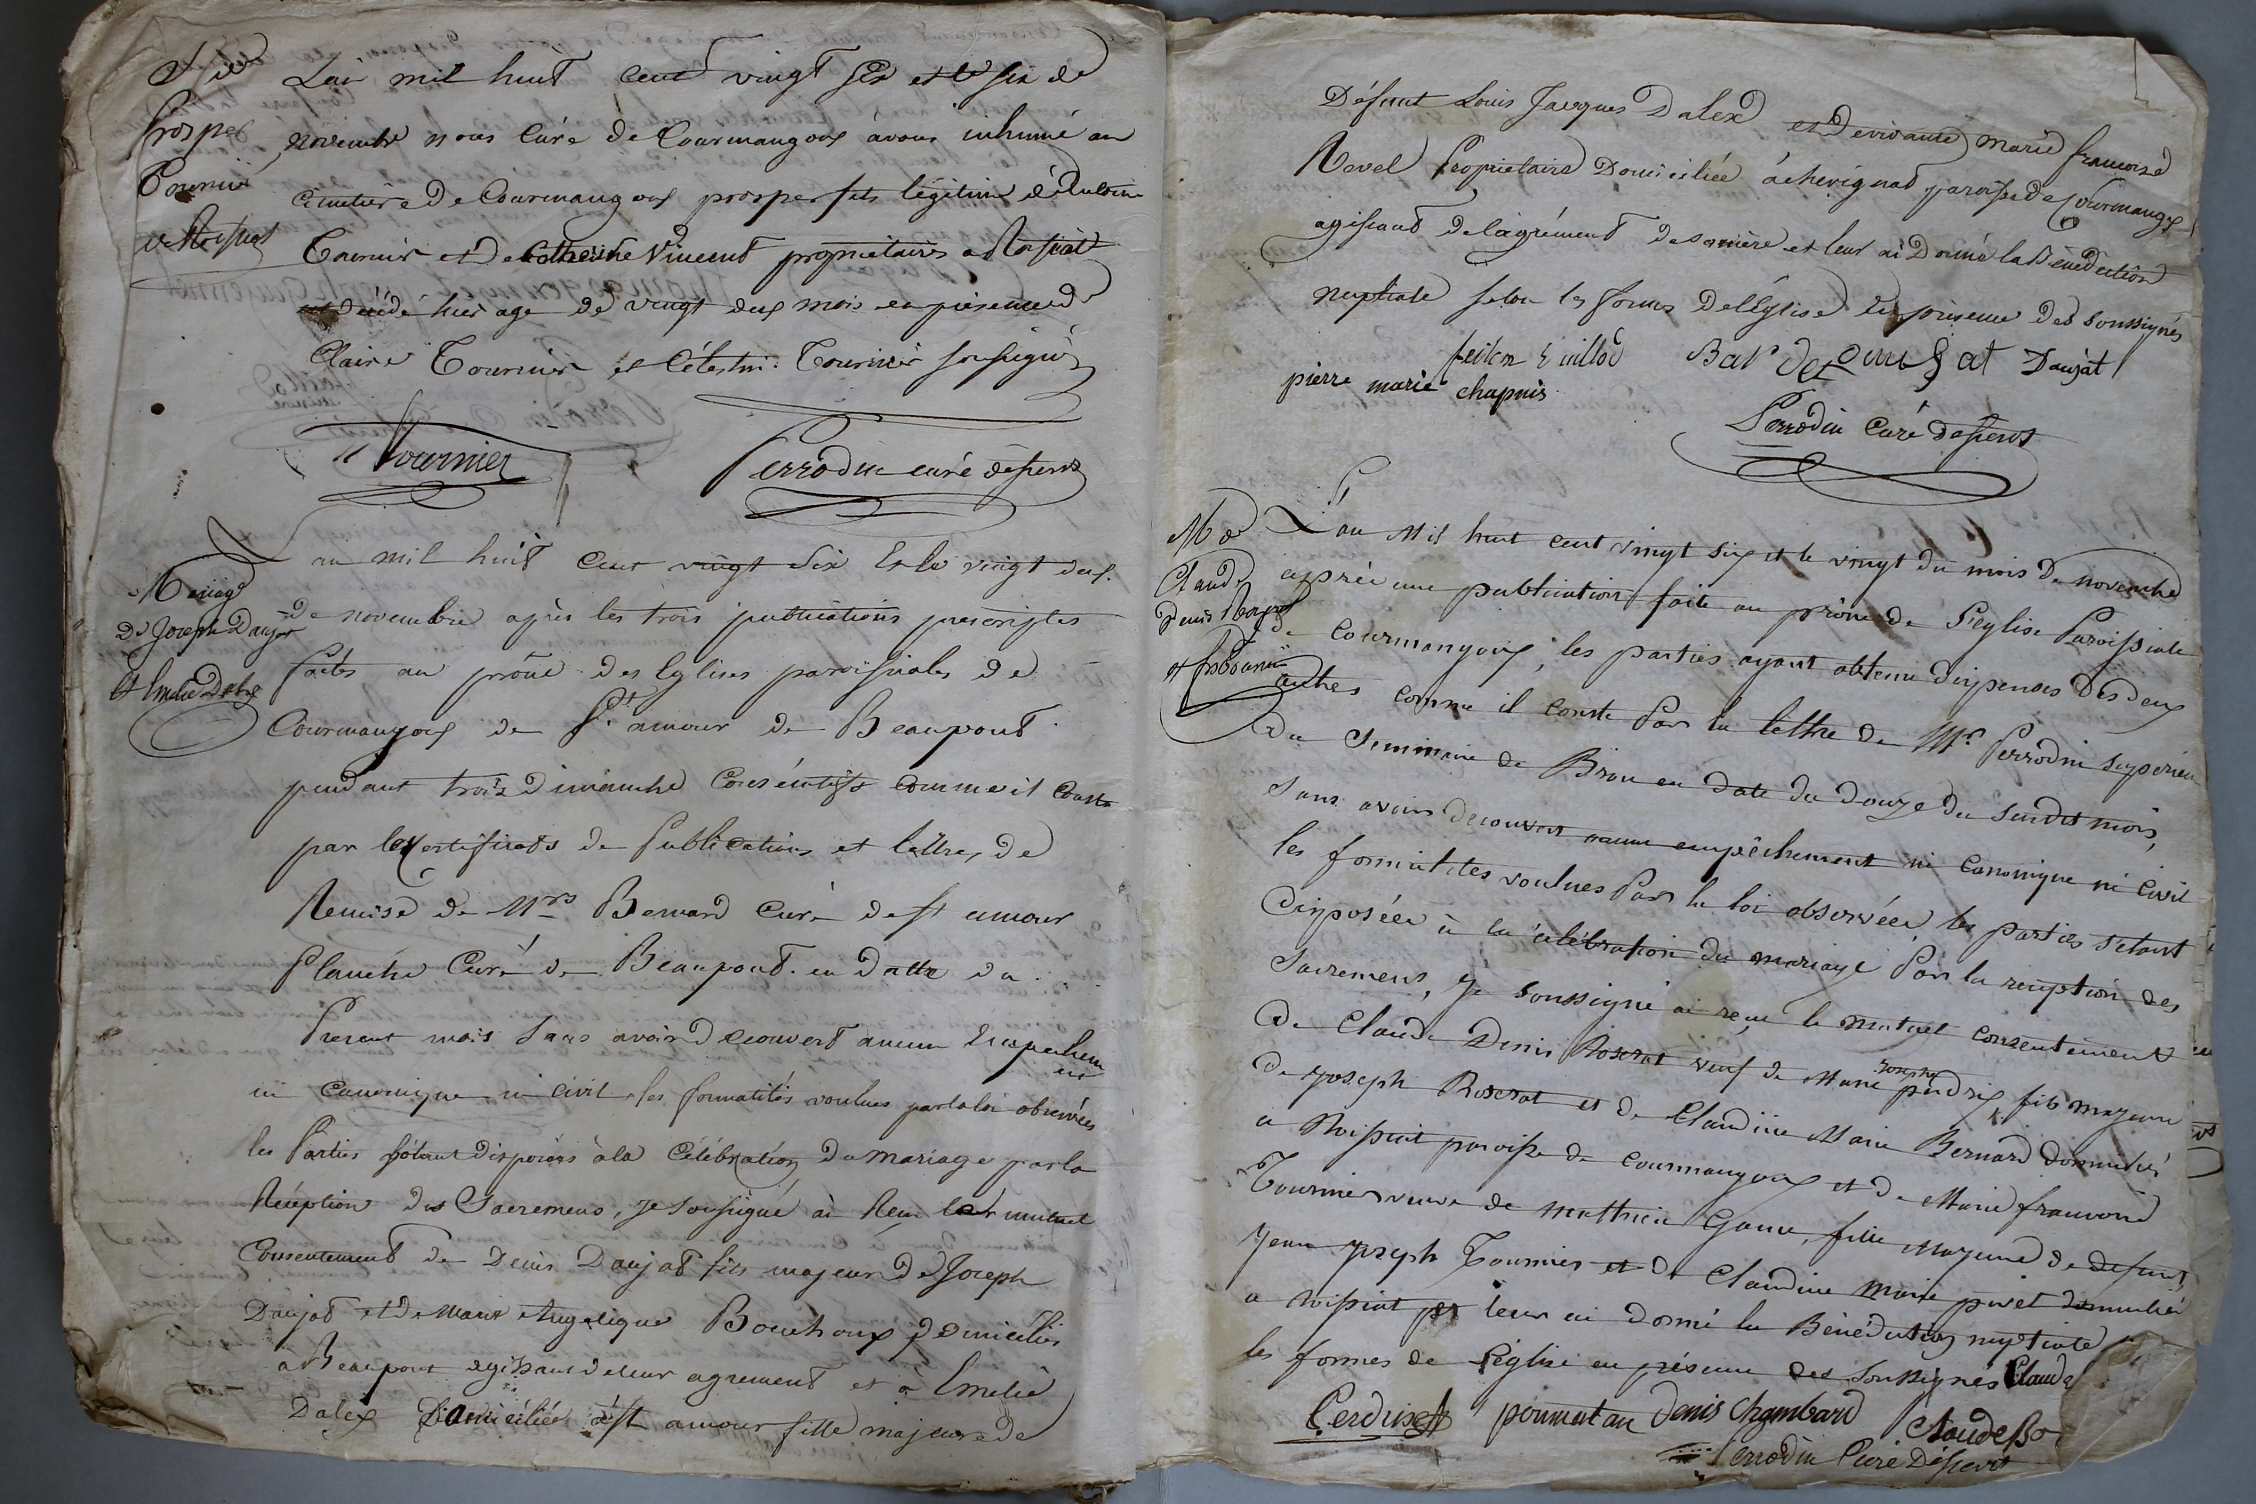 Prosper
Tournier
L'an mil huit cent vingt six et le six de
novembre nous Curé de Courmangoux avons inhumé au
cimetière de Courmangoux prosper fils légitime d'
Tournier et de Catherine Vincent propriétaires a Roissiat
et décédé hier age de vingt deux mois en présence de
Claire Tournier et Célestin Tournier soussignés
Tournier
Perrodin curé desservt
Mariage
De Joseph Daujat
et Emelie Dalex
L'an mil huit Cent vingt Six Et le vingt deux
de novembre après les trois publications prescriptes
faites au prône des Eglises paroissiales de
Courmangoux de St amour de Beaupont
pendant trois Dimanche Consécutifs comme il Conste
par les Certificats de Publications et lettres de
Remise de Mrs Bernard Curé de st amour
Planche Curé de Beaupont en Datte du
Présent mois Sans avoir Découvert aucun Empechem
ent
ni Canonique ni civil les formalités voulues par la loi observées
les Parties s'étant disposées à la Célébration Du Mariage par la
Réception des Sacremens, Je Soussigné ai Reçu leur mutuel
Consentement de Denis Daujat fils majeur De Joseph
Daujat et De Marie Angelique Bouchoux Domiciliés
à Beaupont agissant de leur agrement et à Emelie
Dalex Domiciliée à St amour fille majeure de
Défunt Louis Jacques Dalex et De vivante Marie francoise
Revel Propriétaire Domiciliée à chevignat paroisse de Courmangoux
agissant De l'agrément de sa mère et leur ai Donné la Bénédiction
nuptiale selon les formes De l'Eglise En présence des Soussignés
Daujat
pierre marie chapuis
Perrodin Curé desservt
M de
Claude
Denis Roserat
L'an Mil huit cent vingt six et le vingt du mois De novembre
après une publication faite au prône de l'eglise Paroissiale
de Courmangoux, les parties ayant obtenu dispenses des deux
autres comme il conste Par la lettre de Mr Perrodin supérieur
du Seminaire de Brou en date du douze du susdit mois,
sans avoir decouvert aucun empêchement ni canonique ni civil
les formalités voulues Par la loi observées les parties s'etant
Disposées à la célébration du mariage Par la reception des
Sacremens, Je soussigné ai reçu le mutuel consentement
de Claude Denis Roserat veuf de Marie Josephe perdrix fils majeur
de Joseph Roserat et de Claudine Marie Bernard domiciliés
a Roissiat paroisse de Courmangoux et de Marie francoise
Tournier veuve de Matthieu Game, fille Majeure de defunt
Jean Joseph Tournier et de Claudine Marie pivet domiciliés
a roissiat et leur ai donné la Bénédiction nuptiale
les formes de l'église en présence des Soussignés Claude
Perdrix poumatau Denis Chambard
Claude Ro
Perrodin Curé Desservt